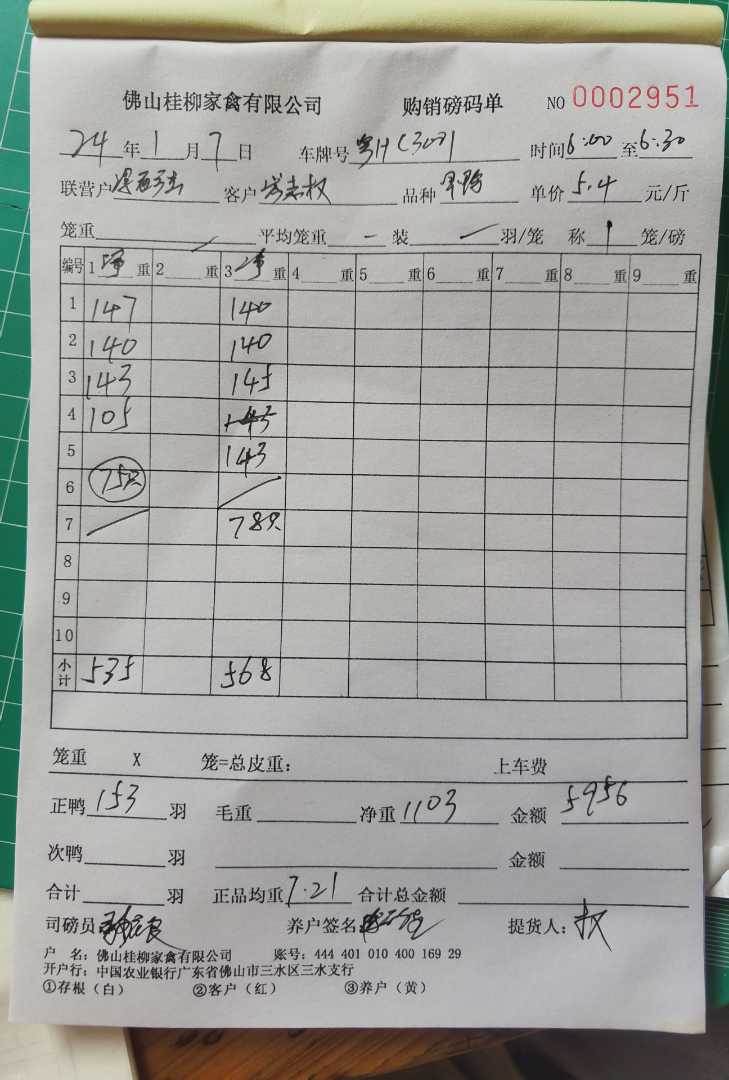 佛山桂柳家禽有限公司 购销磅码单 NO 0002951
24年1月7日 车牌号 时间6:00至6:30
联营户 客户 品种 单价5.4元/斤
笼重 平均笼重 — 装 羽/笼 称1笼/磅
编号 1净重 2重 3净重 4重 5重 6重 7重 8重 9重
1 147 140
2 140 140
3 143 145
4 105 143
5 143
6 75只
7 78只
8
9
10
小计 535 568
笼重 X 笼=总皮重: 上车费
正鸭153羽 毛重 净重1103 金额5956
次鸭 羽 金额
合计 羽 正品均重7.21 合计总金额
司磅员: 养户签名: 提货人:权
户 名: 佛山桂柳家禽有限公司 账号: 444 401 010 400 169 29
开户行: 中国农业银行广东省佛山市三水区三水支行
①存根(白) ②客户(红) ③养户(黄)